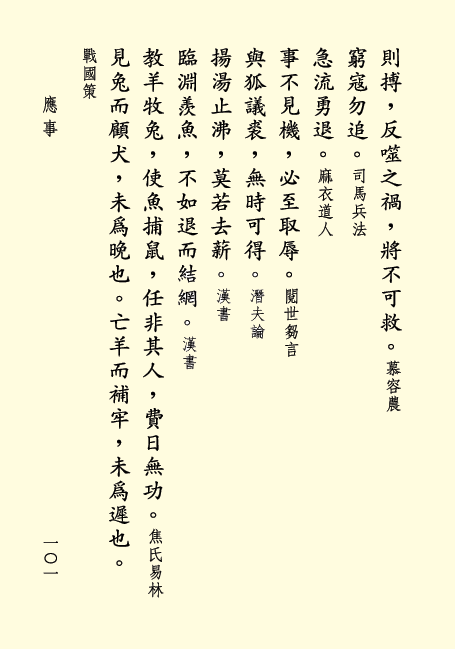 則搏，反噬之禍，將不可救。慕容農
窮寇勿追。司馬兵法
急流勇退。麻衣道人
事不見機，必至取辱。閱世芻言
與狐議裘，無時可得。潛夫論
揚湯止沸，莫若去薪。漢書
臨淵羨魚，不如退而結網。漢書
教羊牧兔，使魚捕鼠，任非其人，費日無功。焦氏易林
見兔而顧犬，未為晚也。亡羊而補牢，未為遲也。
戰國策
應事
一〇一